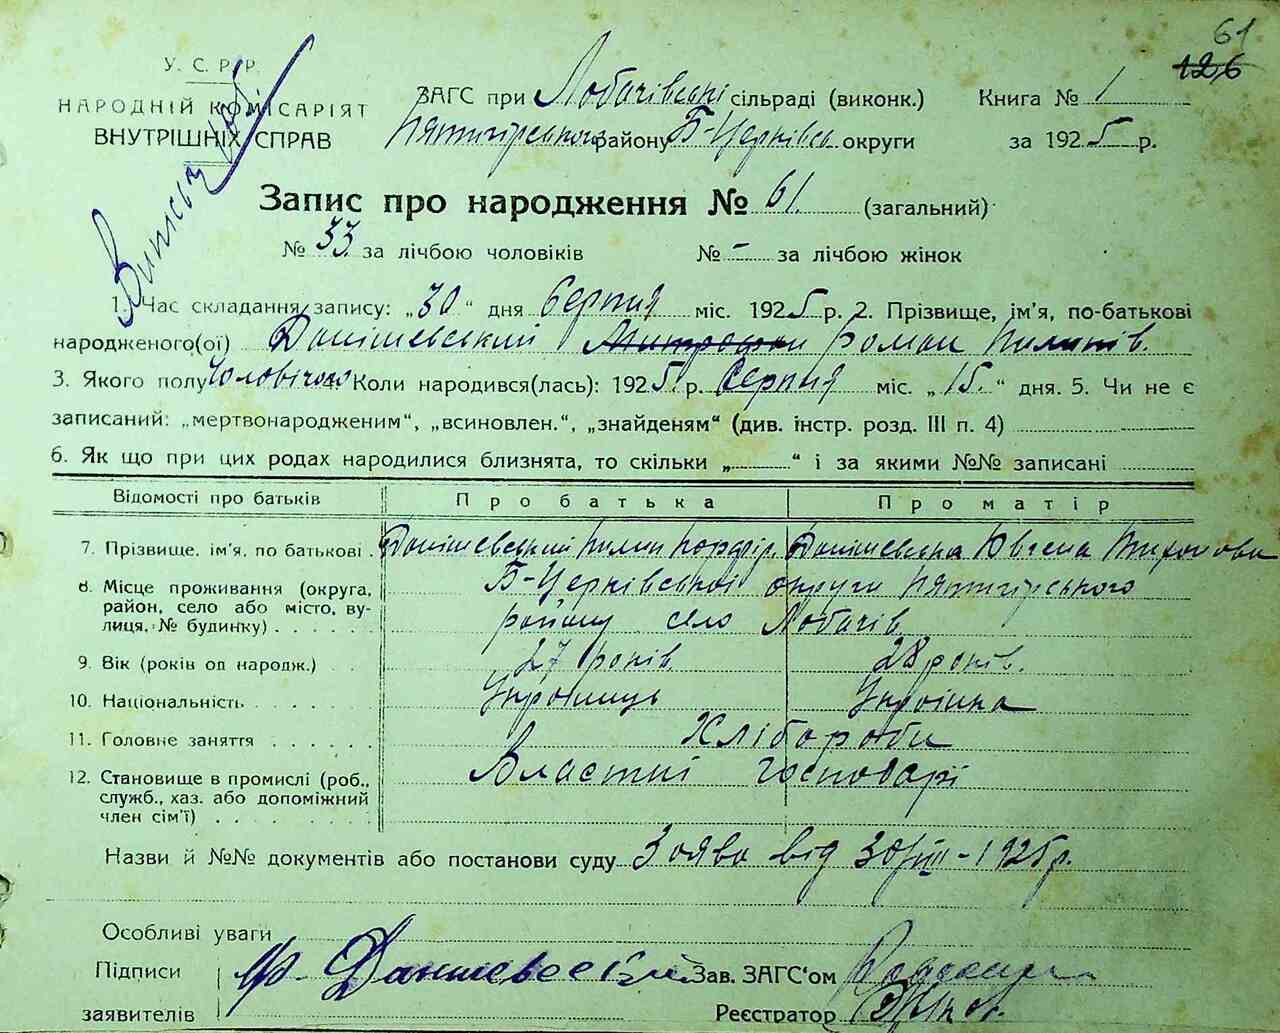 61
126
У. С. Р. Р.
НАРОДНІЙ КОМІСАРІЯТ
ВНУТРІШНІХ СПРАВ
ЗАГС при Лобачівські сільраді (виконк.) Книга № 1
Пятигірського району Б-Церківсь округи за 1925 р.
Запис про народження № 61. (загальний)
№ 33. за лічбою чоловіків № - за лічбою жінок
1. Час складання запису: „30“ дня Серпня міс. 1925 р. 2. Прізвище, ім'я, по-батькові
народженого(ої) Данішевський Роман Пилипів.
3. Якого полу Чоловічого 4. Коли народився(лась): 1925 р. Серпня міс. „15.“ дня. 5. Чи не є
записаний: „мертвонародженим“, „всиновлен.“, „знайденям“ (див. інстр. розд. III п. 4)
6. Як що при цих родах народилися близнята, то скільки „ “ і за якими №№ записані
Відомості про батьків Про батька Про матір
7. Прізвище, ім'я, по батькові . Данішевський Пилип Порфір. Данішевська Ювгена Тихонова
8. Місце проживання (округа, Б-Церківської округи Пятигірського
район, село або місто, ву- району село Лобачів
лиця, № будинку) . . . . . .
9. Вік (років од народж.) . . 27 років 28 років.
10. Національність . . . . . Українець Українка
11. Головне заняття . . . . . . Хлібороби
12. Становище в промислі (роб., Властні господарі
служб., хаз. або допоміжний
член сім'ї) . . . . . . . .
Назви й №№ документів або постанови суду Заява від 30/VIII-1925 р.
Особливі уваги
Підписи Данишевский Зав. ЗАГС'ом
заявителів Реєстратор